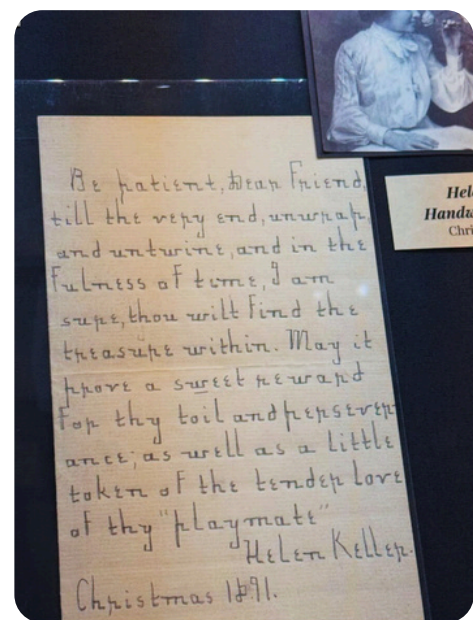 Be patient, Dear Friend,
till the very end, unwrap,
and untwine, and in the
fulness of time, I am
sure, thou wilt find the
treasure within. May it
prove a sweet reward
for thy toil and persever-
ance; as well as a little
token of the tender love
of thy "playmate"
Helen Keller.
Christmas 1891.
Hel
Handw
Chri